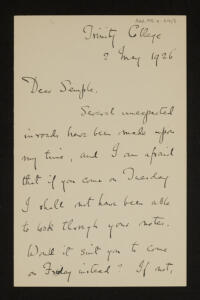 Trinity College
2 May 1926
Dear Semple,
Several unexpected
inroads have been made upon
my time, and I am afraid
that if you come on Tuesday
I shall not have been able
to look through your notes.
Would it suit you to come
on Friday instead? If not,